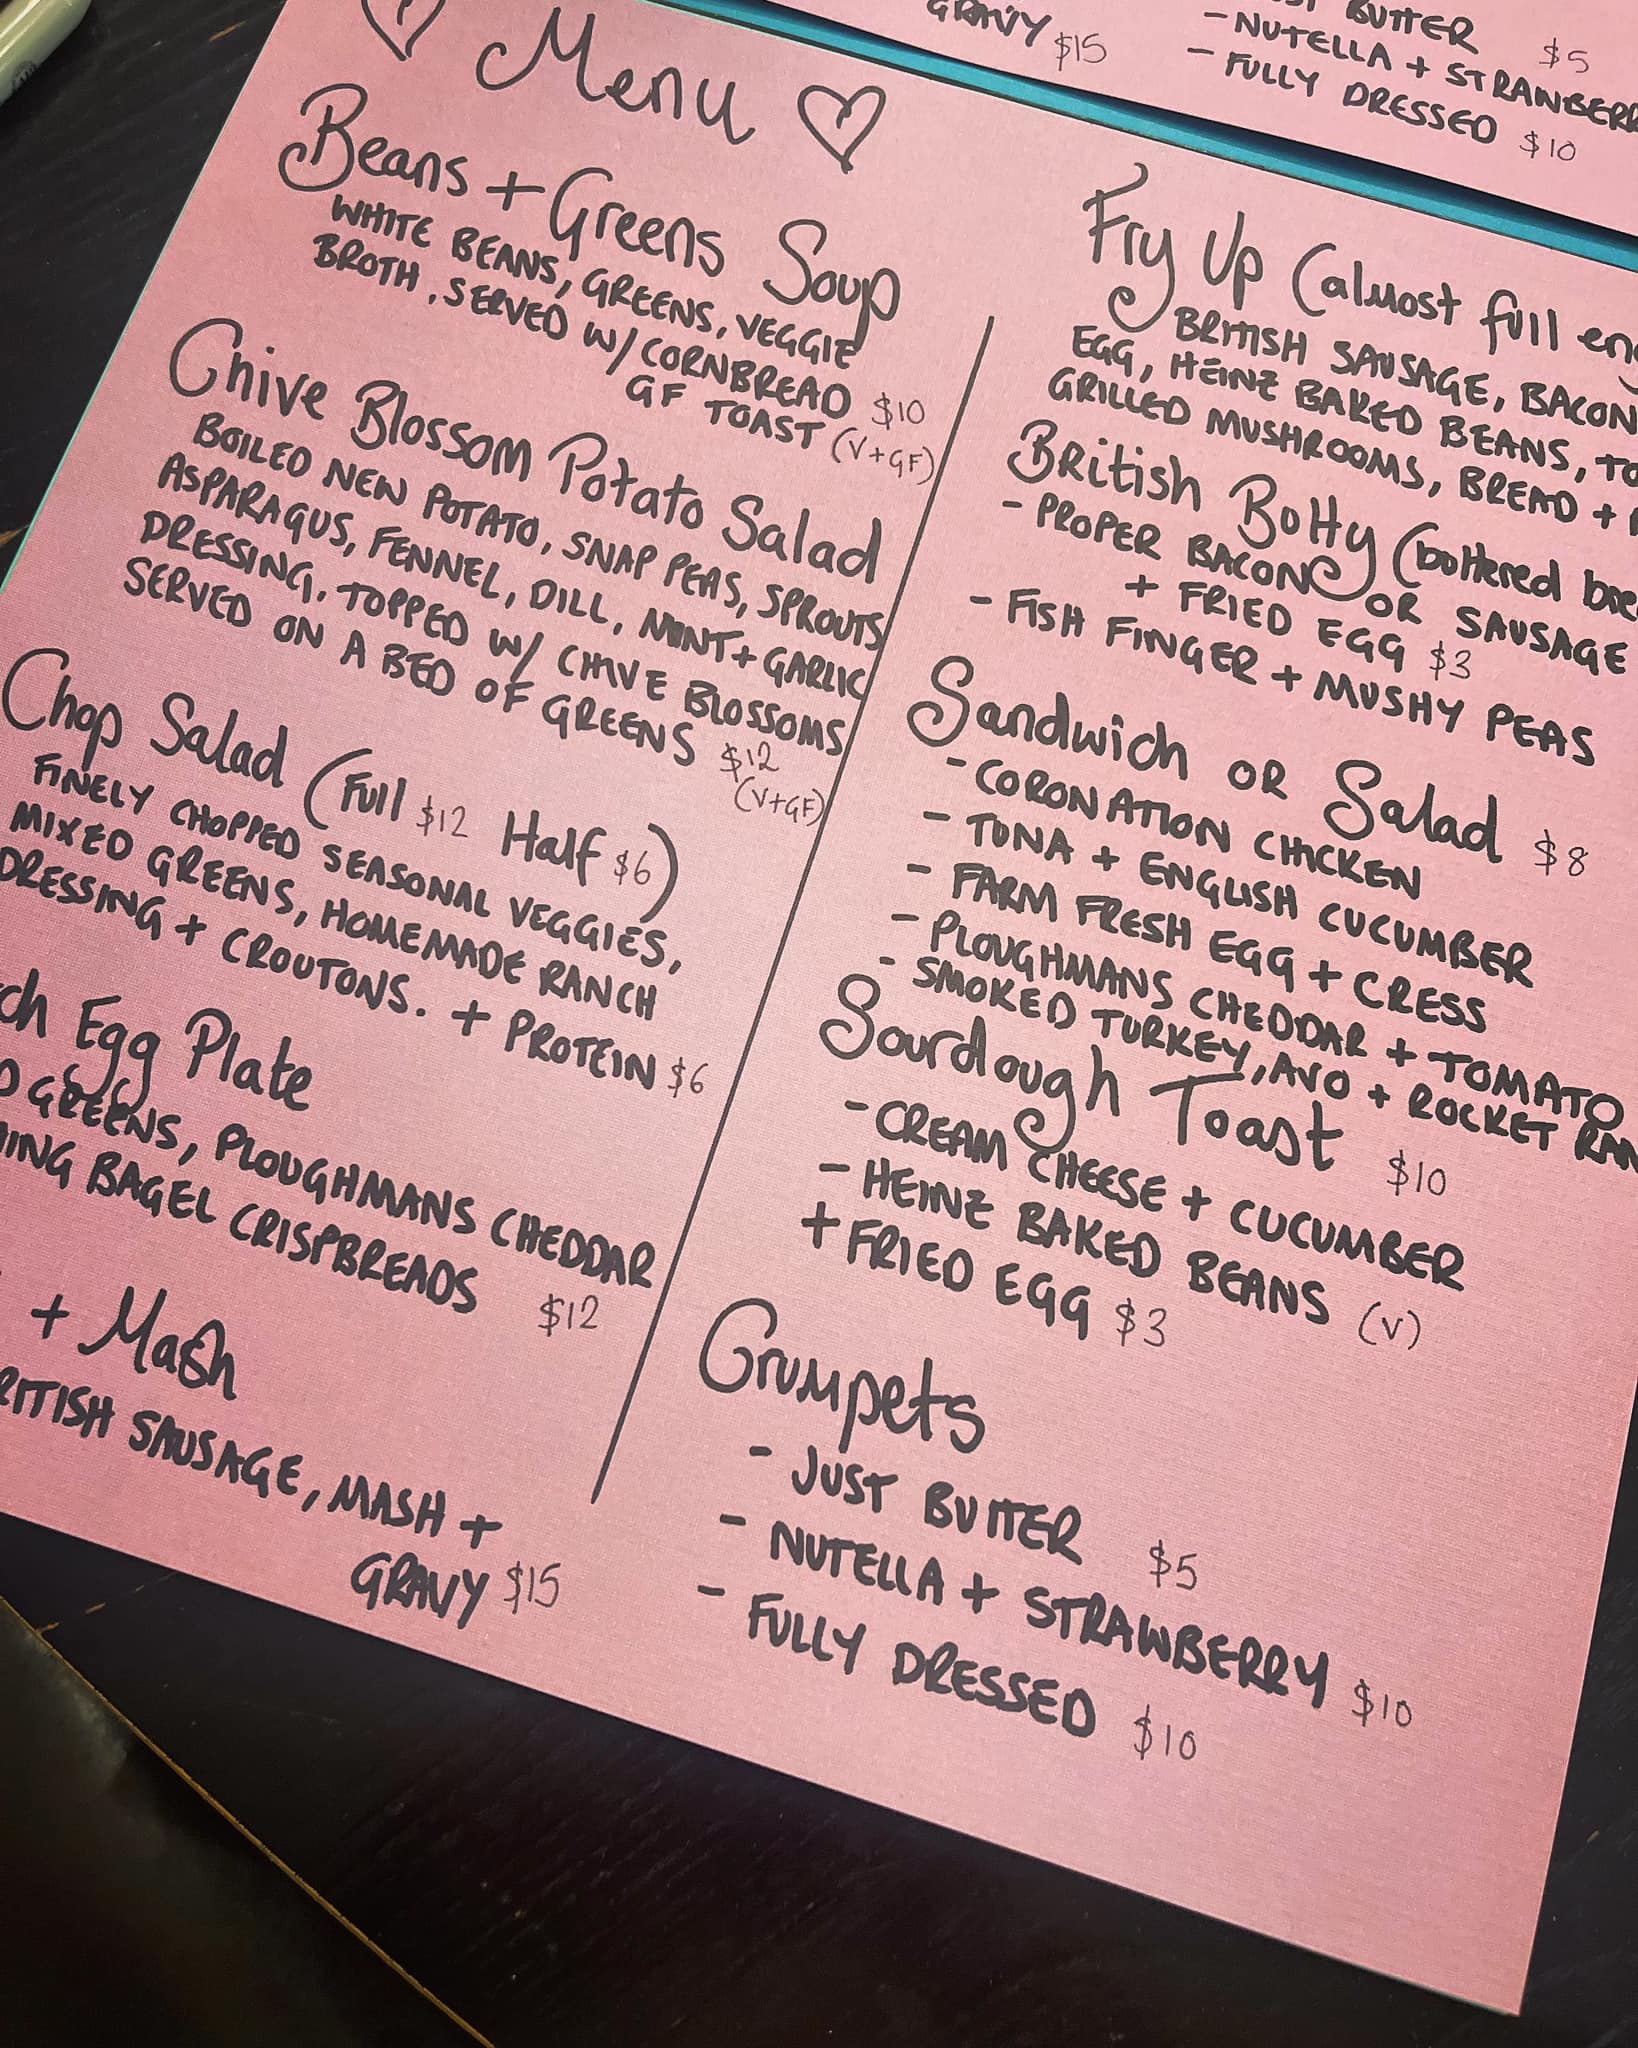 Menu
Beans + Greens Soup
WHITE BEANS, GREENS, VEGGIE
BROTH, SERVED W/ CORNBREAD $10
GF TOAST (V+GF)
Chive Blossom Potato Salad
BOILED NEW POTATO, SNAP PEAS, SPROUTS
ASPARAGUS, FENNEL, DILL, MINT + GARLIC
DRESSING, TOPPED W/ CHIVE BLOSSOMS
SERVED ON A BED OF GREENS $12
(V+GF)
Chop Salad (Full $12 Half $6)
FINELY CHOPPED SEASONAL VEGGIES,
MIXED GREENS, HOMEMADE RANCH
DRESSING + CROUTONS. + PROTEIN $6
Egg Plate
GREENS, PLOUGHMANS CHEDDAR
BAGEL CRISPBREADS $12
+ Mash
BRITISH SAUSAGE, MASH +
GRAVY $15
Fry Up (almost full
BRITISH SAUSAGE, BACON
EGG, HEINZ BAKED BEANS,
GRILLED MUSHROOMS, BREAD +
British Butty (buttered
- PROPER BACON OR SAUSAGE
+ FRIED EGG $3
- FISH FINGER + MUSHY PEAS
Sandwich OR Salad $8
- CORONATION CHICKEN
- TUNA + ENGLISH CUCUMBER
- FARM FRESH EGG + CRESS
- PLOUGHMANS CHEDDAR + TOMATO
- SMOKED TURKEY, AVO + ROCKET
Sourdough Toast $10
- CREAM CHEESE + CUCUMBER
- HEINZ BAKED BEANS (V)
+ FRIED EGG $3
Crumpets
- JUST BUTTER $5
- NUTELLA + STRAWBERRY $10
- FULLY DRESSED $10
GRAVY $15
BUTTER $5
- NUTELLA +
- FULLY DRESSED $10